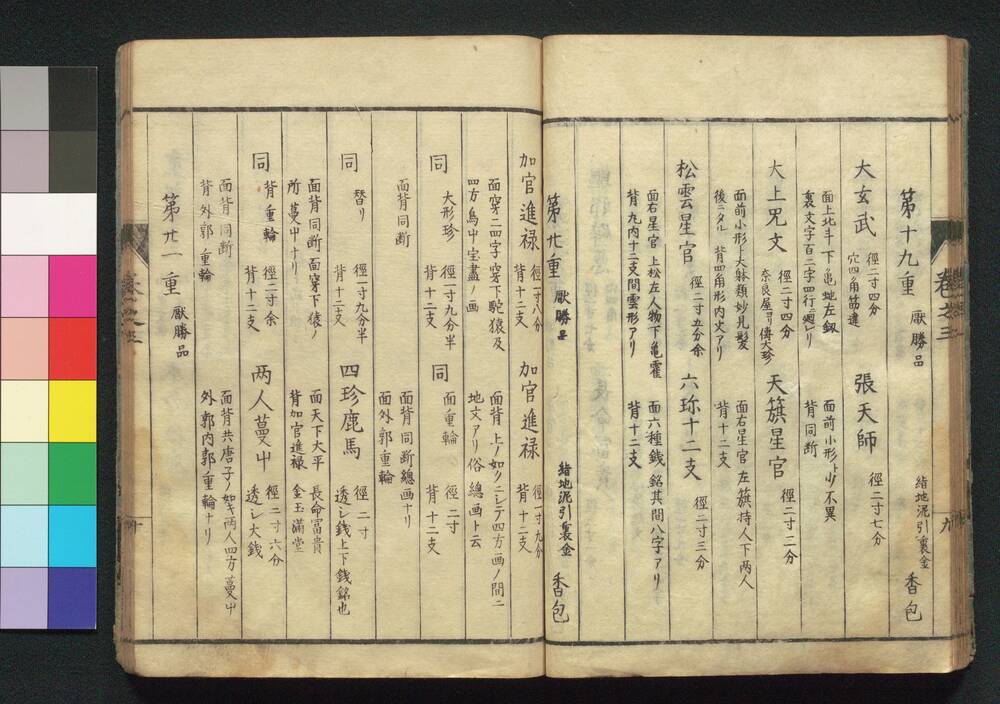 第十九重 厭勝品 緒地泥引裏金 香包
大玄武 徑二寸四分 穴四角筋違
面上北斗下亀地左釼
裏文字百二字四行ニ廻リ
張天師 徑二寸七分
面前小形ト少不異
背同断
大上咒文 徑二寸四分 奈良屋ヨリ傳大珍
面前小形ト大躰類妙見髪
後ニタル 背四角形内文アリ
天籏星官 徑二寸二分
面右星官 左籏持人下両人
背十二支
松雲星官 徑二寸五分余
面右星官 上松左人物下亀霍
背九内十二支間雲形アリ
六珎十二支 徑二寸三分
面六種銭銘其間八字アリ
背十二支
第廿重 厭勝品 緒地泥引裏金 香包
加官進禄 徑一寸八分 背十二支
面穿二四字穿下駝猿及
四方鳥中宝盡ノ画
加官進禄 徑一寸九分 背十二支
面背上ノ如クニシテ四方画ノ間ニ
地文アリ俗 總画ト云
同 大形珍 徑一寸九分半 背十二支
面背同断
同 面重輪 徑二寸 背十二支
面背同断總画ナリ
面外郭重輪
同 替リ 徑一寸九分半 背十二支
面背同断面穿下猿ノ
所蔓中ナリ
四珍鹿馬 徑二寸 透シ銭上下銭銘也
面天下大平 長命富貴
背加官進禄 金玉滿堂
同 背重輪 徑二寸余 背十二支
面背同断
背外郭重輪
両人蔓中 徑二寸六分 透シ大銭
面背共唐子ノ如キ両人四方蔓中
外郭内郭重輪ナリ
第廿一重 厭勝品
卷之三
九